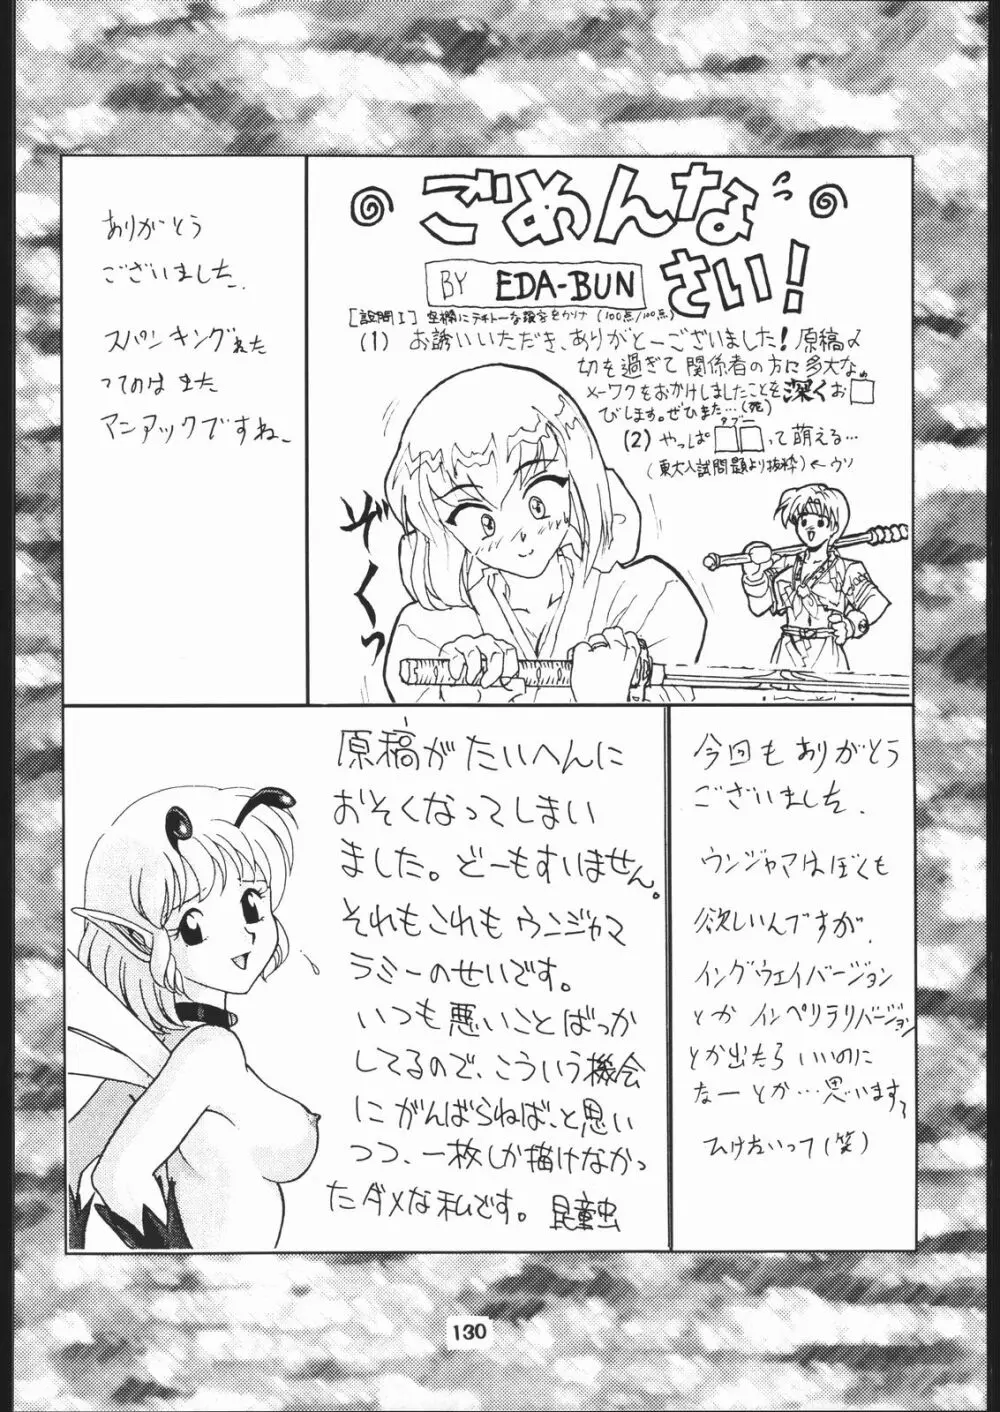 ありがとう
ございました.
スパンキングネタ
ってのは また
マニアックですね、
ごめんな
さい!
BY EDA-BUN
[設問I] 空欄にテキトーな語をかけ (100点/100点)
(1) お誘いいただき、ありがとーございました! 原稿〆
切を過ぎて関係者の方に多大な
メーワクをおかけしましたことを深くお□
びします。ぜひまた…(死)
タブー
(2) やっぱ□□って萌える…
(東大入試問題より抜粋) ←ウソ
ぞくっ
原稿がたいへんに
おそくなってしまい
ました。どーもすいません。
それもこれもウンジャマ
ラミーのせいです。
いつも悪いことばっか
してるので、こういう機会
にがんばらねば、と思い
つつ、一枚しか描けなかっ
たダメな私です。 昆童虫
今回もありがとう
ございました.
ウンジャマはぼくも
欲しいんですが.
イングウェイバージョン
とか インペリテリバージョン
とか出たら いいのに
なー とか…思います
ひけないって(笑)
130